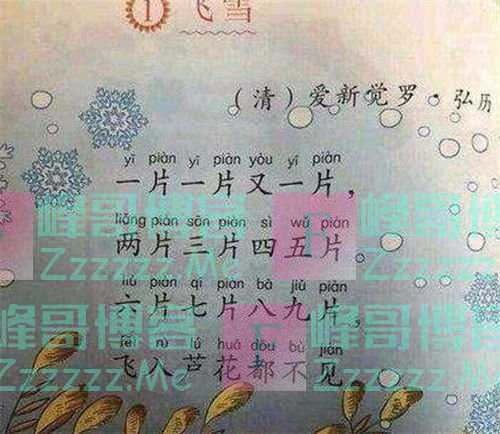 1 飞雪
（清）爱新觉罗·弘历
yī piàn yī piàn yòu yī piàn
一片一片又一片，
liǎng piàn sān piàn sì wǔ piàn
两片三片四五片。
liù piàn qī piàn bā jiǔ piàn
六片七片八九片，
fēi rù lú huā dōu bù jiàn
飞入芦花都不见
峰哥博客
Zzzzzz.Me
峰哥博客
Zzzzzz.Me
峰哥博客
Zzzzzz.Me
峰哥博客
Zzzzzz.Me